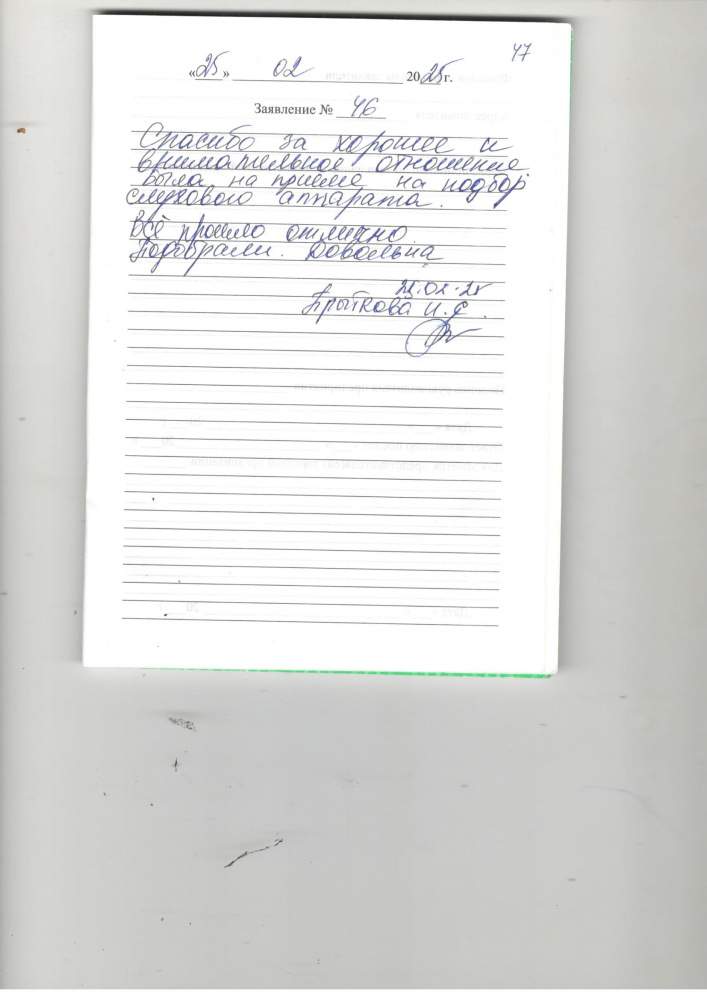 47
«25» 02 2025г.
Заявление № 46
Спасибо за хорошее и
внимательное отношение
была на приёме на подбор
слухового аппарата.
всё прошло отлично.
Подобрали. Довольна
25.02.25
Прыткова И.С.